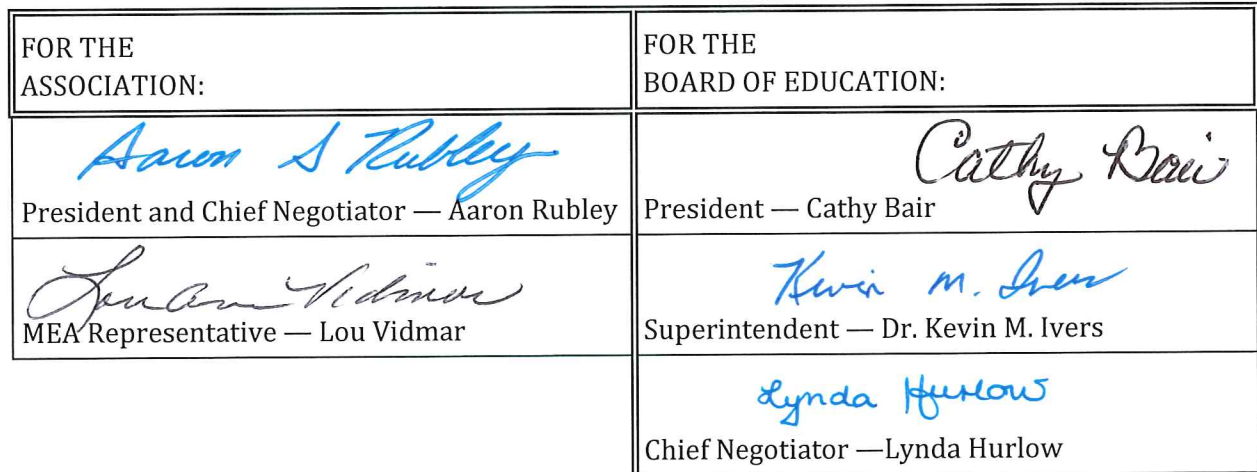 FOR THE
ASSOCIATION:
Aaron S Rubley
President and Chief Negotiator — Aaron Rubley
Lou Ann Vidmar
MEA Representative — Lou Vidmar
FOR THE
BOARD OF EDUCATION:
Cathy Bair
President — Cathy Bair
Kevin M. Ivers
Superintendent — Dr. Kevin M. Ivers
Lynda Hurlow
Chief Negotiator —Lynda Hurlow